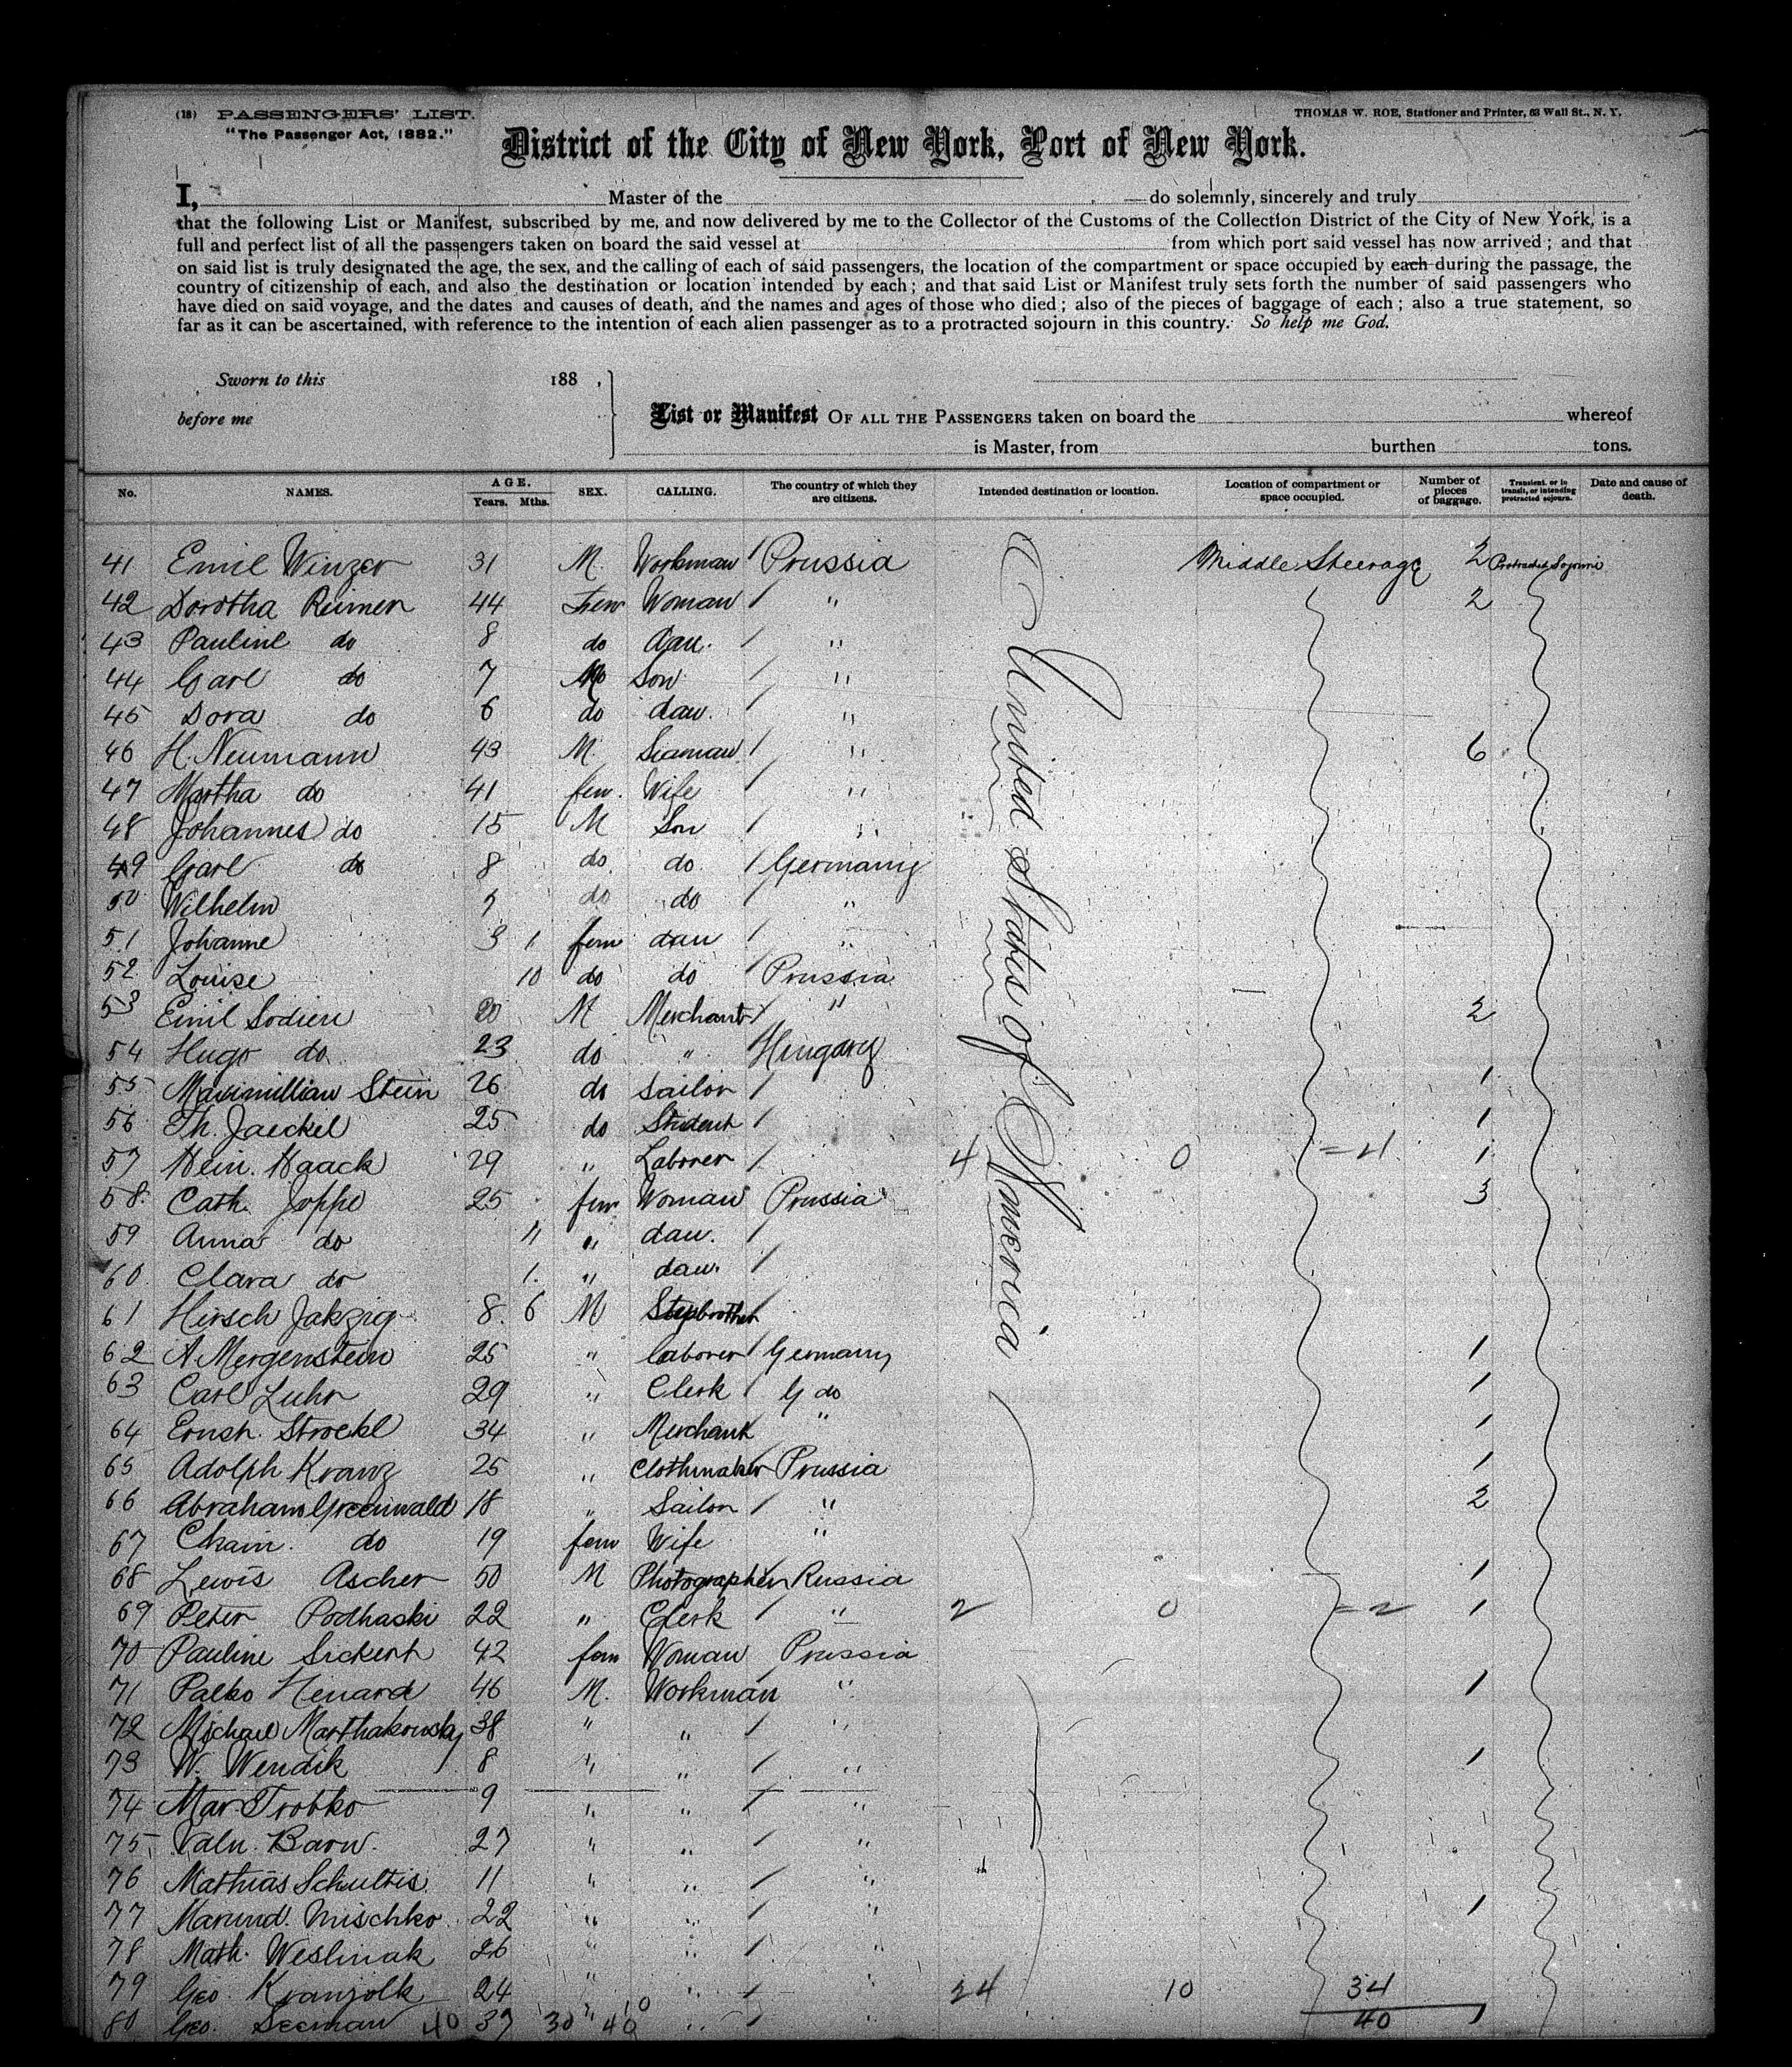 (18) PASSENGERS' LIST.
THOMAS W. ROE, Stationer and Printer, 63 Wall St., N. Y.
"The Passenger Act, 1882."
District of the City of New York, Port of New York.
I, Master of the do solemnly, sincerely and truly
that the following List or Manifest, subscribed by me, and now delivered by me to the Collector of the Customs of the Collection District of the City of New York, is a
full and perfect list of all the passengers taken on board the said vessel at from which port said vessel has now arrived; and that
on said list is truly designated the age, the sex, and the calling of each of said passengers, the location of the compartment or space occupied by each during the passage, the
country of citizenship of each, and also the destination or location intended by each; and that said List or Manifest truly sets forth the number of said passengers who
have died on said voyage, and the dates and causes of death, and the names and ages of those who died; also of the pieces of baggage of each; also a true statement, so
far as it can be ascertained, with reference to the intention of each alien passenger as to a protracted sojourn in this country. So help me God.
Sworn to this 188 ,
before me
List or Manifest OF ALL THE PASSENGERS taken on board the whereof
is Master, from burthen tons.
No. NAMES. AGE. Years. Mths. SEX. CALLING. The country of which they are citizens. Intended destination or location. Location of compartment or space occupied. Number of pieces of baggage. Transient, or in transit, or intending protracted sojourn. Date and cause of death.
United States of America
41 Emil Winzer 31 M. Workman / Prussia Middle Steerage 2 Protracted Sojourn
42 Dorotha Reimer 44 fem Woman / " 2
43 Pauline do 8 do dau. / "
44 Carl do 7 M Son / "
45 Dora do 6 do dau. / "
46 H. Neumann 43 M. Seaman / " 6
47 Martha do 41 fem. Wife / "
48 Johannes do 15 M Son / "
49 Carl do 8 do. do. / Germany
50 Wilhelm do do "
51 Johanne 3 1 fem dau / "
52 Louise 10 do do / Prussia
53 Emil Sodien 20 M Merchant / " 2
54 Hugo do 23 do " Hungary
55 Maximillian Stein 26 do Sailor / 1
56 Th. Jaeckel 25 do Student / 1
57 Hein. Haack 29 " Laborer / 4 0 = 4 1
58. Cath. Joppe 25 fem Woman Prussia 3
59 Anna do 11 " dau. /
60. Clara do 1. " dau. /
61 Hirsch Jakzig 8. 6 M Stepbrother /
62 A Mergenstein 25 " laborer / Germany 1
63 Carl Luhr 29 " Clerk / G do 1
64 Ernst. Stroekl 34 " Merchant " 1
65 Adolph Kranz 25 " Clothmaker Prussia 1
66 Abraham Greenwald 18 " Sailor / " 2
67 Chain. do 19 fem Wife "
68 Lewis Ascher 50 M Photographer Russia 1
69 Peter Podhaski 22 " Clerk / " 2 0 = 2 1
70 Pauline Sickert 42 fem Woman Prussia
71 Palko Henard 46 M. Workman " 1
72 Michael Marthakowsky 38 " " / "
73 W. Wendik 8 " " / " 1
74 Mar. Trobko 9 " " / "
75 Valn. Barn. 27 " " / "
76 Mathias Schultis. 11 " " / "
77 Marund. Mischko 22 " " / " 1
78 Math. Weslinak 26 " " / "
79 Geo. Kranjolk 24 " " / " 24 10 34
80 Geo. Seeman 40 37 30 " 10 40 " / 40 1